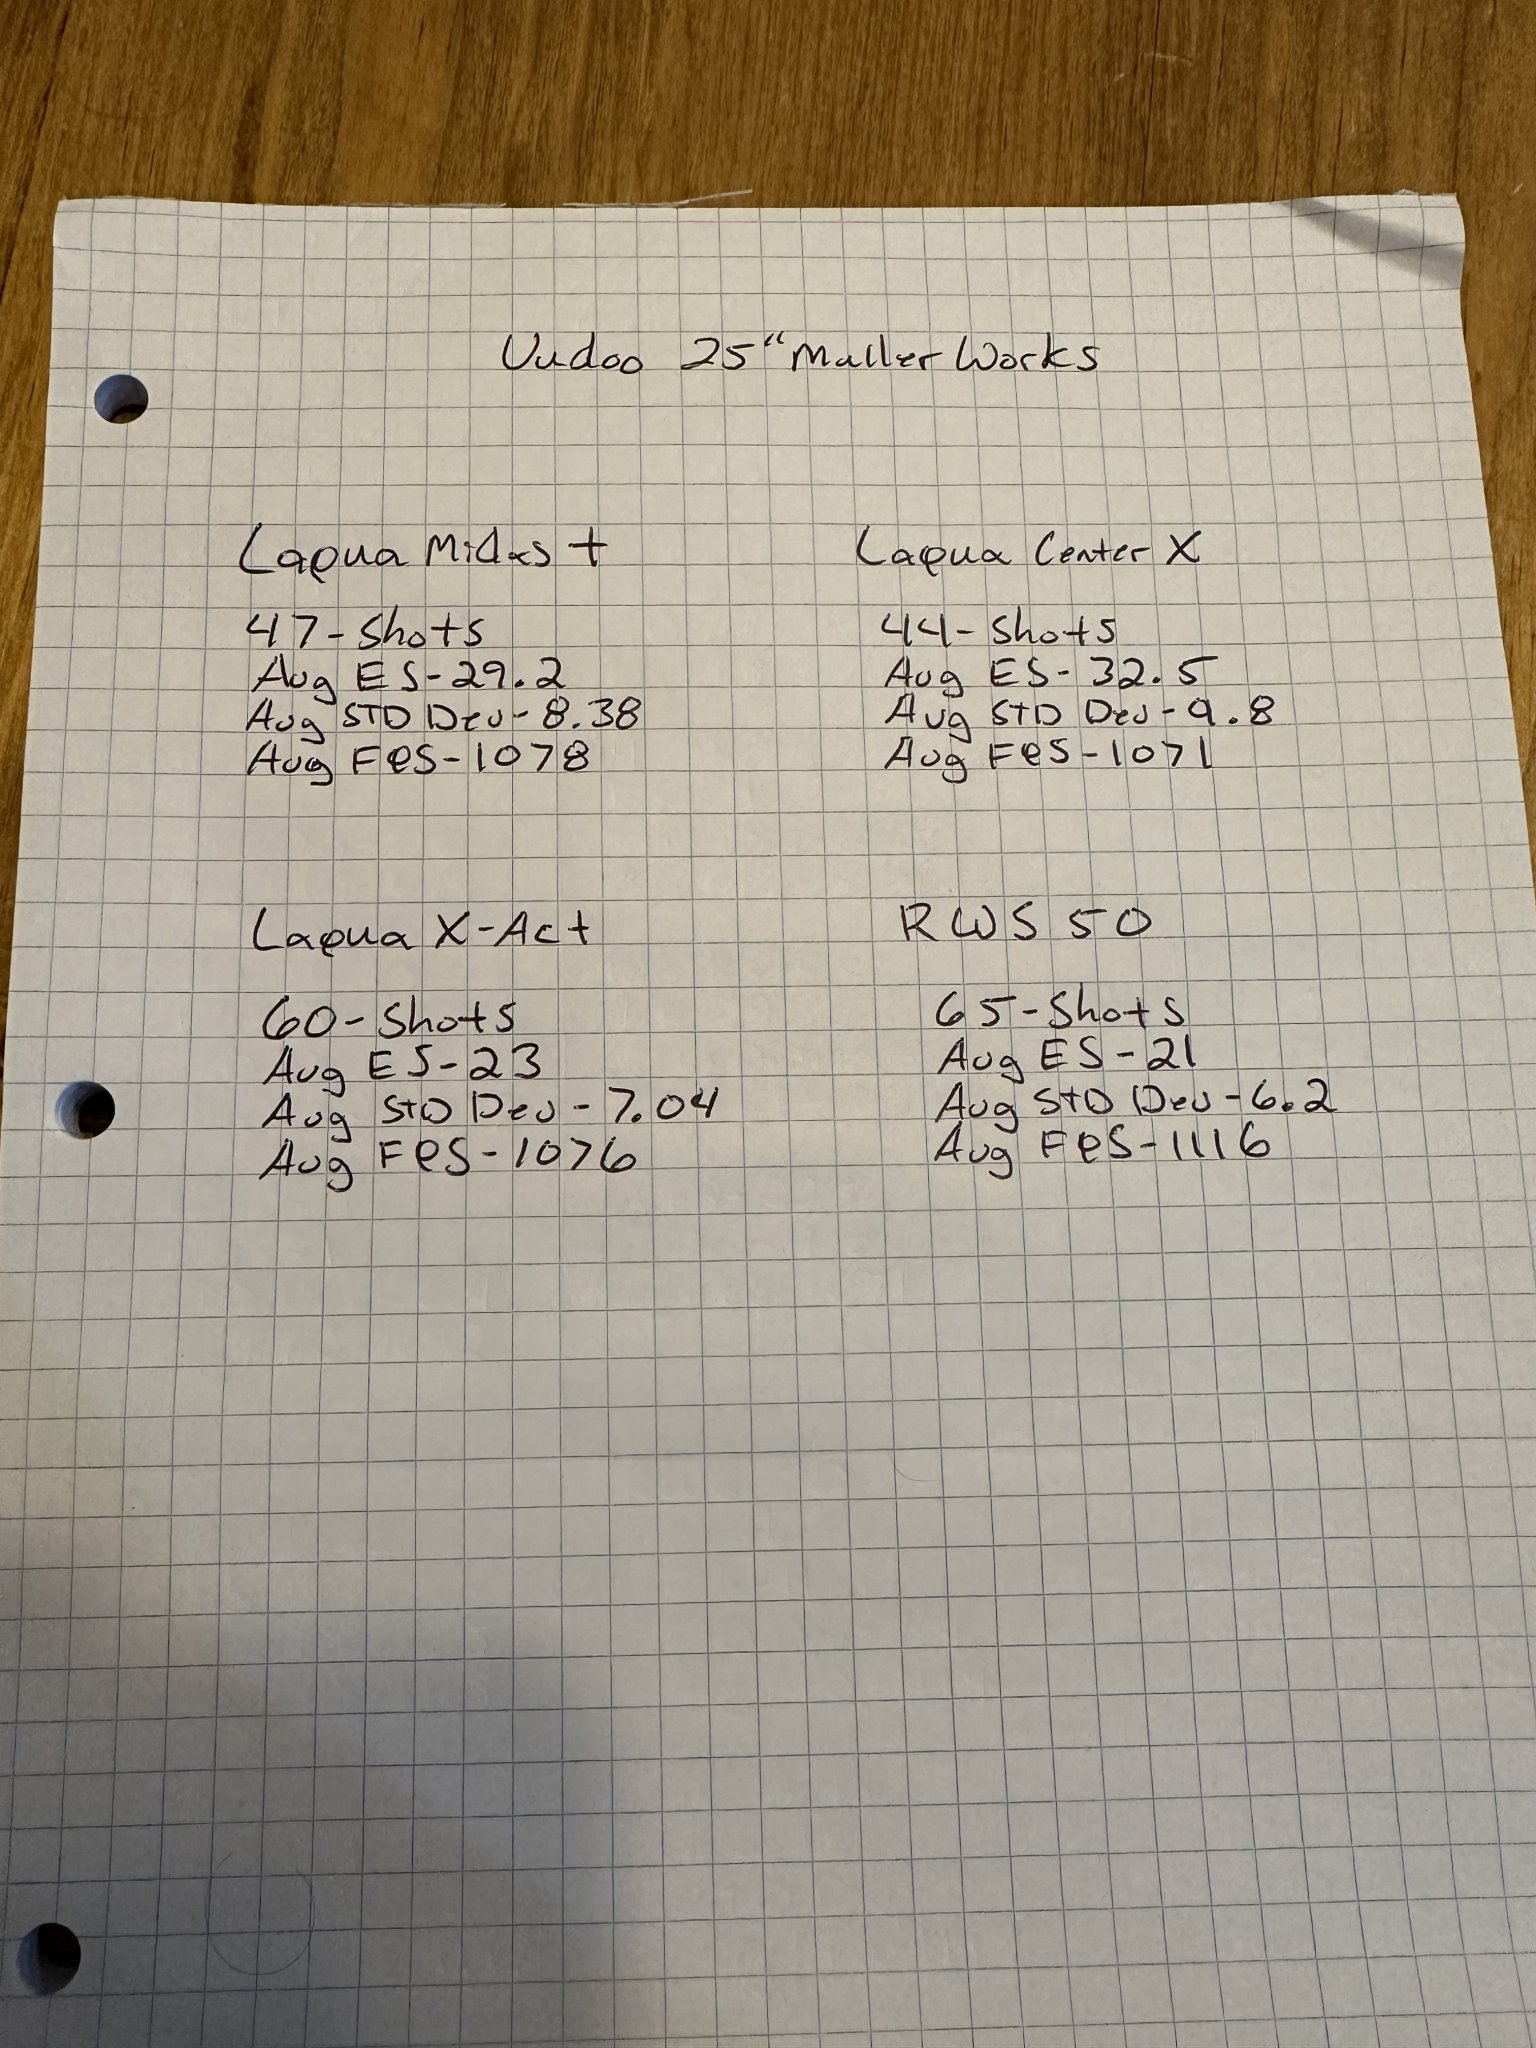 Vudoo 25" Muller Works
Lapua Midas +
47-Shots
Avg ES-29.2
Avg STD Dev-8.38
Avg FPS-1078
Lapua Center X
44-Shots
Avg ES-32.5
Avg STD Dev-9.8
Avg FPS-1071
Lapua X-Act
60-Shots
Avg ES-23
Avg STD Dev-7.04
Avg FPS-1076
RWS 50
65-Shots
Avg ES-21
Avg STD Dev-6.2
Avg FPS-1116